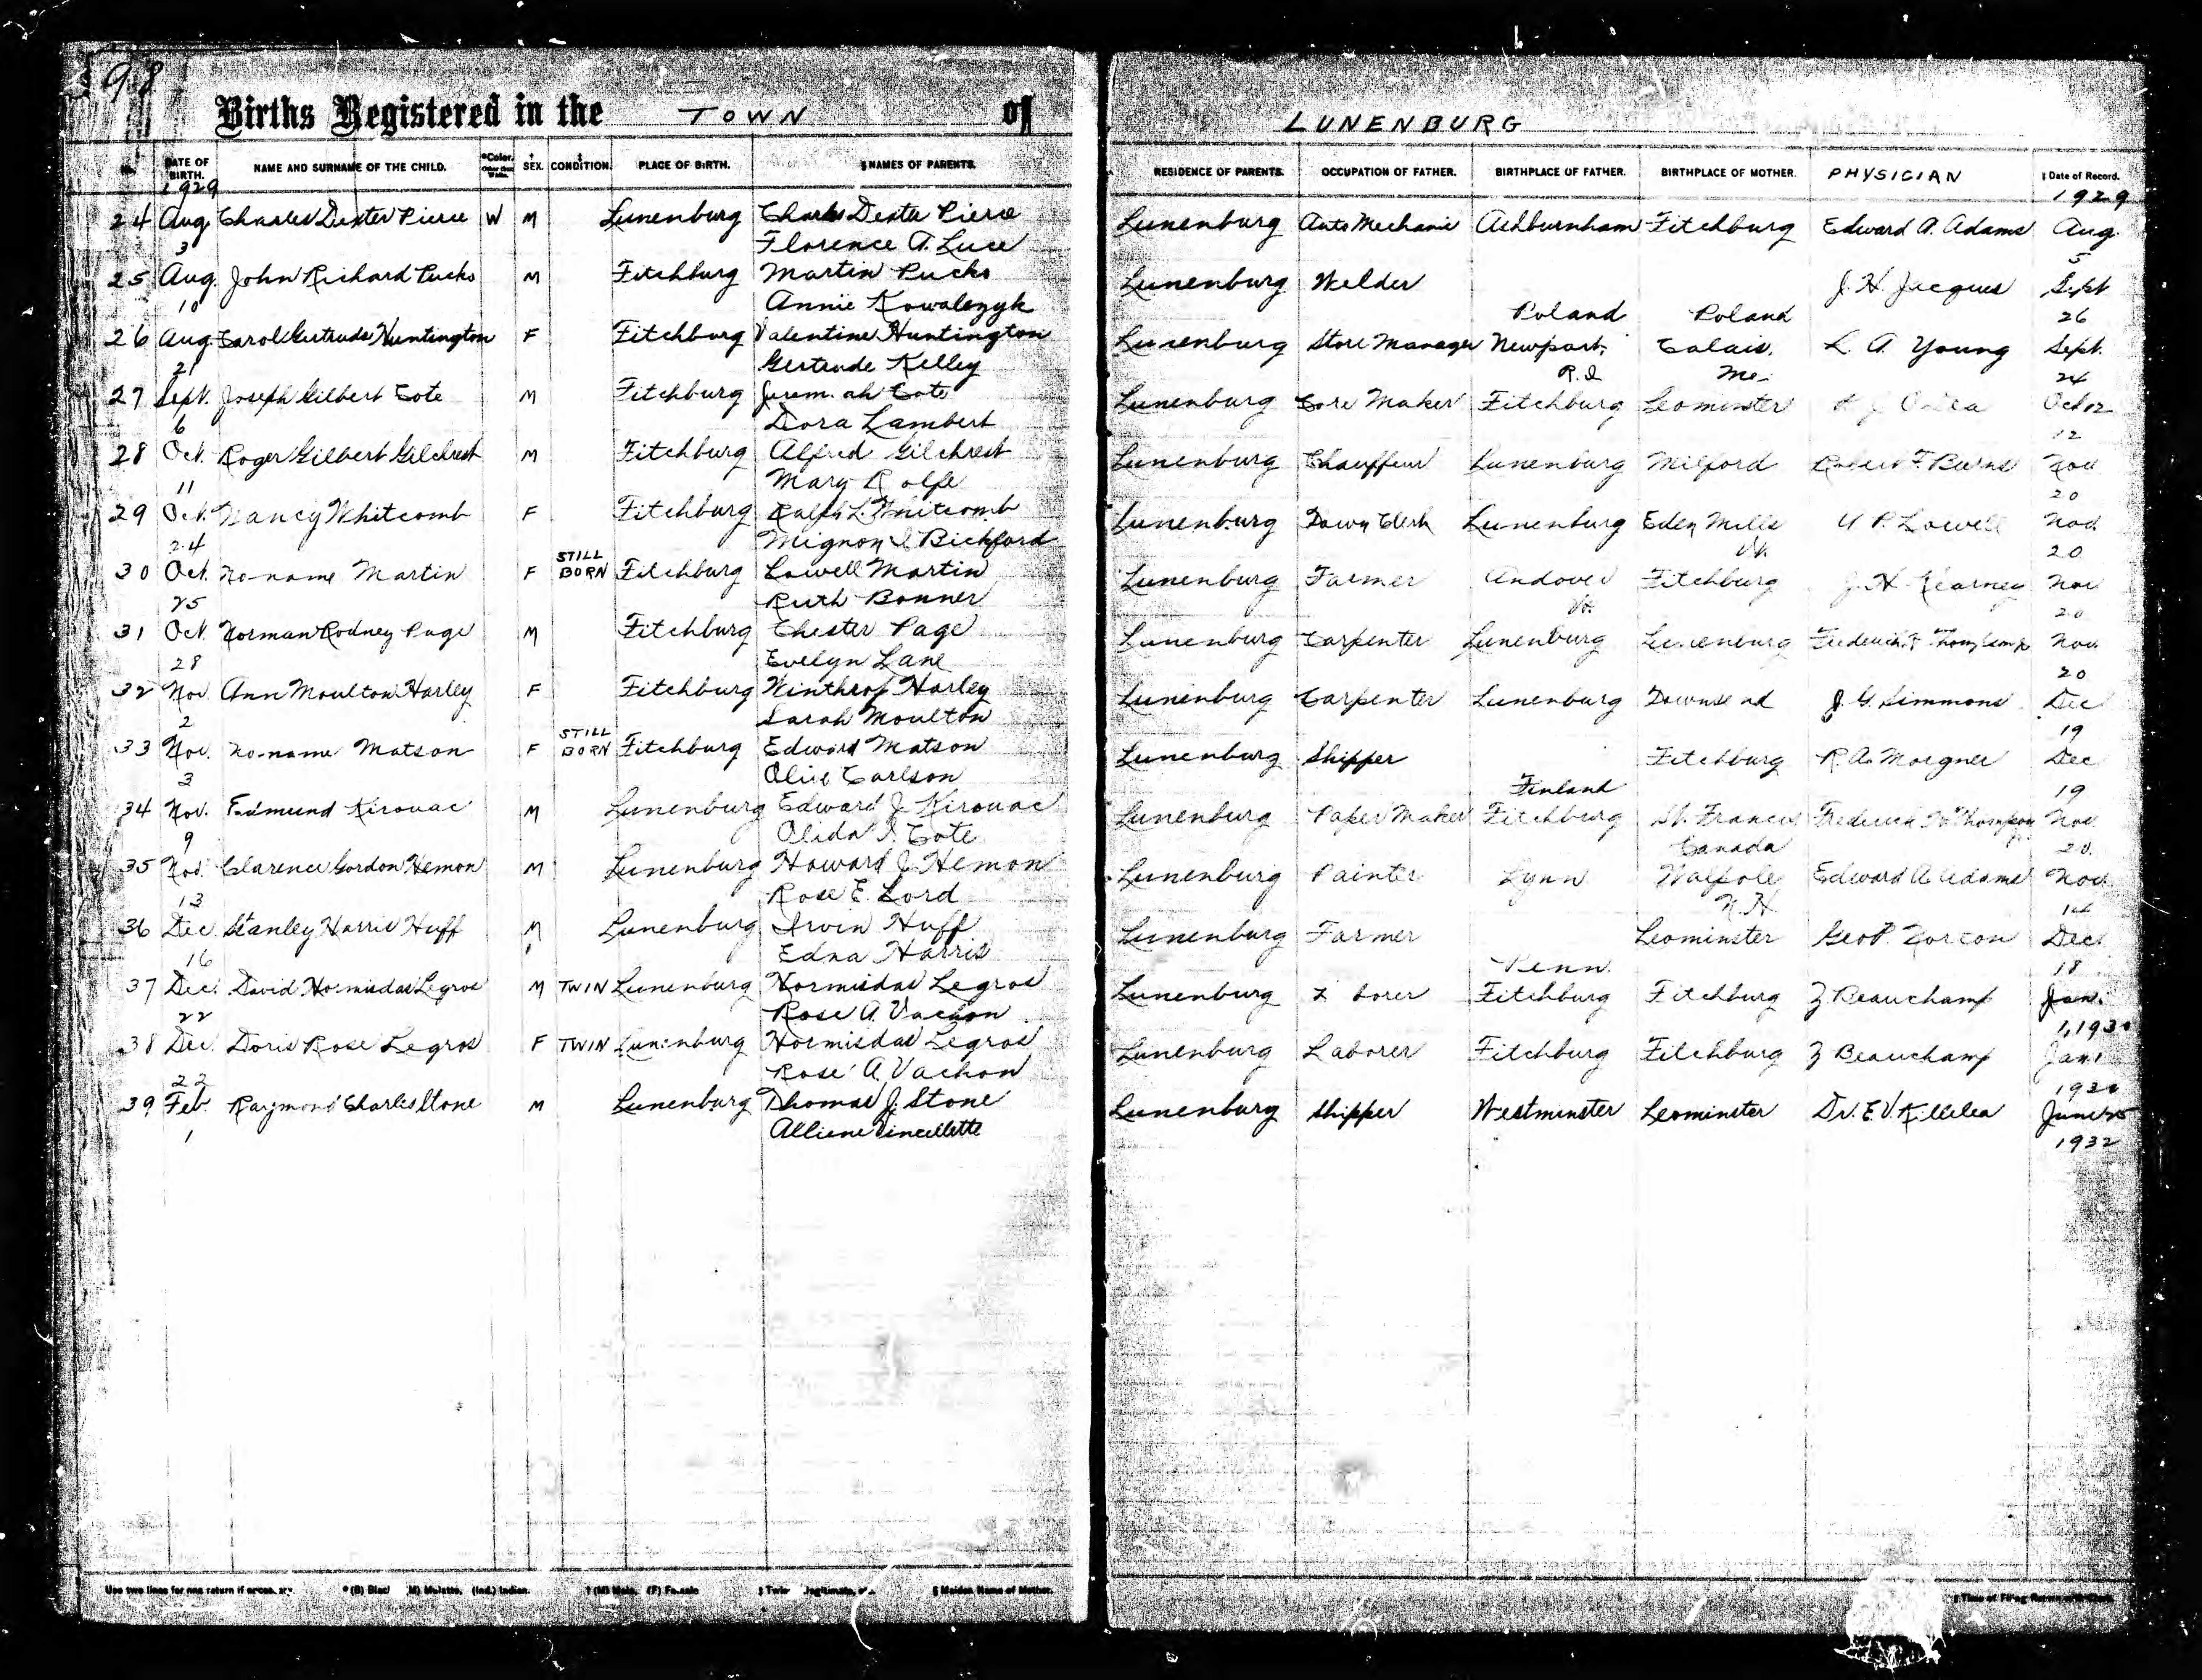 98
Births Registered in the TOWN of LUNENBURG
DATE OF BIRTH. NAME AND SURNAME OF THE CHILD. *Color. Other than White. SEX. CONDITION. PLACE OF BIRTH. §NAMES OF PARENTS. RESIDENCE OF PARENTS. OCCUPATION OF FATHER. BIRTHPLACE OF FATHER. BIRTHPLACE OF MOTHER. PHYSICIAN Date of Record.
1929 1929
24 Aug Charles Dexter Pierce W M Lunenburg Charles Dexter Pierce Lunenburg Auto Mechanic Ashburnham Fitchburg Edward A. Adams Aug.
3 Florence A. Luce 5
25 Aug. John Richard Pucko M Fitchburg Martin Pucko Lunenburg Welder J. H. Jacques Sept
10 Annie Kowalczyk Poland Poland 26
26 Aug. Carol Gertrude Huntington F Fitchburg Valentine Huntington Lunenburg Store Manager Newport, Calais, L. A. Young Sept.
21 Gertrude Kelley R.I Me. 24
27 Sept. Joseph Gilbert Cote M Fitchburg Jerem ah Cote Lunenburg Core Maker Fitchburg Leominster Oct 12
6 Dora Lambert 12
28 Oct. Roger Gilbert Gilchrest M Fitchburg Alfred Gilchrest Lunenburg Chauffeur Lunenburg Milford Robert F. Burns Nov
11 Mary Rolfe 20
29 Oct. Nancy Whitcomb F Fitchburg Ralph L. Whitcomb Lunenburg Town Clerk Lunenburg Eden Mills P. Lowell Nov.
24 Mignon I. Bickford Vt. 20
30 Oct. No-name Martin F STILL BORN Fitchburg Lowell Martin Lunenburg Farmer Andover Fitchburg J. H. Kearney Nov
25 Ruth Bonner Vt. 20
31 Oct. Norman Rodney Page M Fitchburg Chester Page Lunenburg Carpenter Lunenburg Lunenburg Frederick Thompson Nov.
28 Evelyn Lane 20
32 Nov. Ann Moulton Harley F Fitchburg Winthrop Harley Lunenburg Carpenter Lunenburg Townsend J. G. Simmons Dec
2 Sarah Moulton 19
33 Nov. No-name Matson F STILL BORN Fitchburg Edward Matson Lunenburg Shipper Fitchburg R. A. Morgner Dec
3 Olive Carlson Finland 19
34 Nov. Edmund Kirouac M Lunenburg Edward J. Kirouac Lunenburg Paper Maker Fitchburg St. Francis Frederick H. Thompson Nov.
9 Olida I. Cote Canada 20.
35 Nov. Clarence Gordon Hemon M Lunenburg Howard J. Hemon Lunenburg Painter Lynn Walpole Edward A. Adams Nov.
13 Rose E. Lord N.H. 14
36 Dec Stanley Harris Huff M Lunenburg Irvin Huff Lunenburg Farmer Leominster Geo P. Norton Dec.
16 Edna Harris Penn. 18
37 Dec. David Hormisdas Legros M TWIN Lunenburg Hormisdas Legros Lunenburg L borer Fitchburg Fitchburg Z Beauchamp Jan.
22 Rose A. Vachon 1, 1930
38 Dec. Doris Rose Legros F TWIN Lunenburg Hormisdas Legros Lunenburg Laborer Fitchburg Fitchburg Z Beauchamp Jan 1
22 Rose A. Vachon 1930
39 Feb. Raymond Charles Stone M Lunenburg Thomas J. Stone Lunenburg Shipper Westminster Leominster Dr. E. V. Killelea June 25
1 Alliene Vincellette 1932
Use two lines for one return if necessary. *(B) Black (M) Mulatto, (Ind.) Indian. †(M) Male, (F) Female ‡Twin §Maiden Name of Mother.